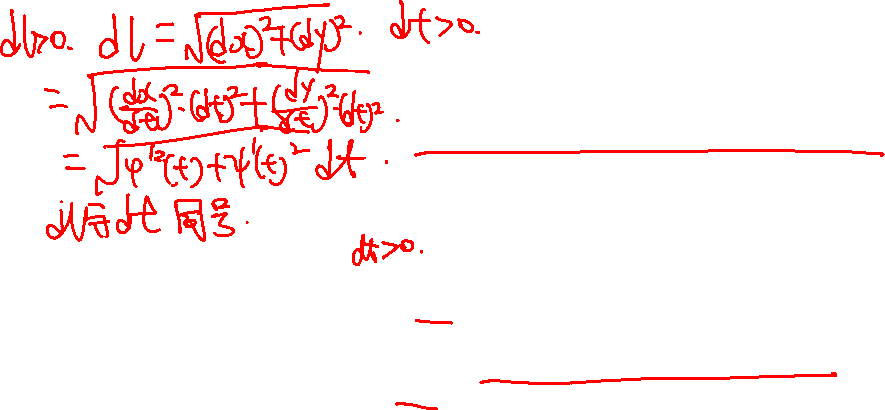 dl>0. dl = √((dx)²+(dy)²). dt>0.
= √((dx/dt)²·(dt)²+(dy/dt)²·(dt)².
= √(φ'²(t)+ψ'(t)² dt.
dl与dt 同号.
dt>0.